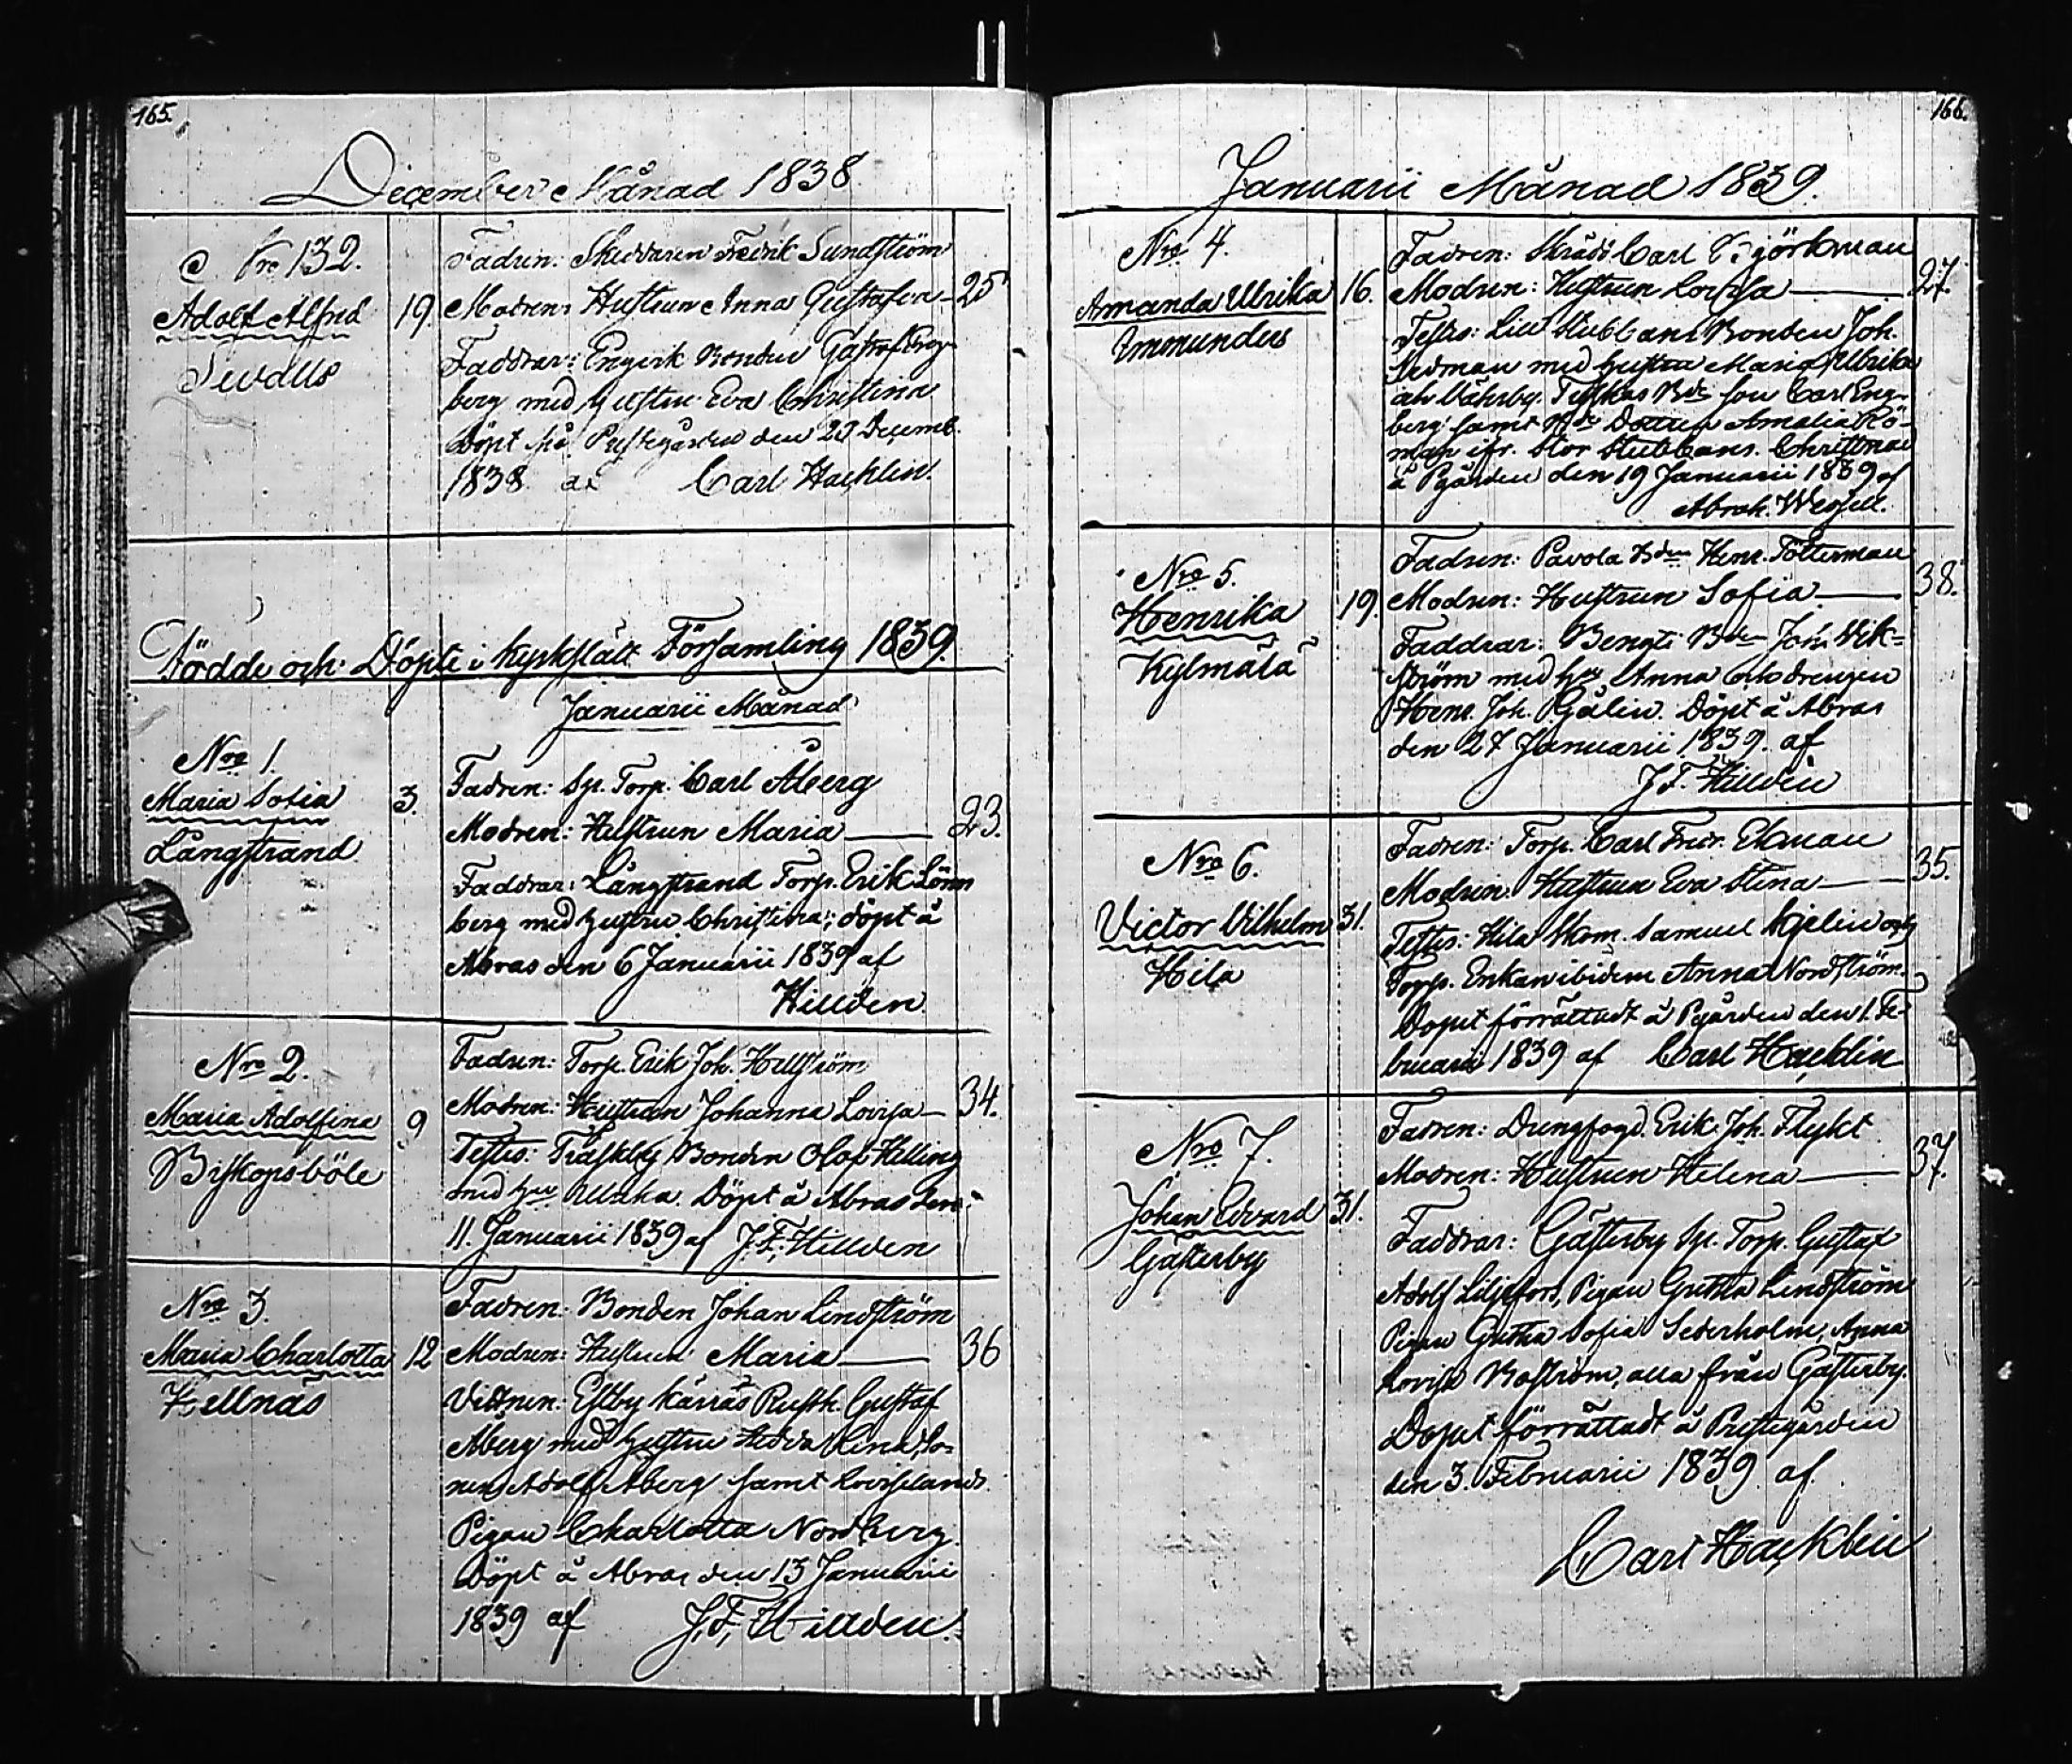 165.
December Månad 1838
Nro 132.
Adolf Alfred
Sivalls
19.
Fadren: Skeddaren Fredrik Sundström
Modren: Hustrun Anna Gustafva – 25
Faddrar: Engvik Bonden Gustaf
berg med Hustru Eva Christina
Döpt på Prestegården den 23 Decemb.
1838 af Carl Hacklin.
Födde och Döpte i Kyrkslätt Församling 1839.
Januarii Månad
Nro 1.
Maria Sofia
Långstrand
3.
Fadren: Sp. Torp. Carl Åberg
Modren: Hustrun Maria — 23.
Faddrar: Långstrand Torp. Erik Lönn
berg med Hustru Christina; döpt å
Abras den 6 Januarii 1839 af
Hillden
Nro 2.
Maria Adolfina
Biskopsböle
9
Fadren: Torp. Erik Joh. Hellström
Modren: Hustrun Johanna Lovisa — 34.
Testes: Träskby Bonden Olof Helling
med Hu Ulrika. Döpt å Abras den
11. Januarii 1839 af J. F. Hillden
Nro 3.
Maria Charlotta
Hellnäs
12
Fadren: Bonden Johan Lindström
Modren: Hustrun Maria — 36
Vittnen: Estby Kärrås Rusth. Gustaf
Åberg med Hustru Hedda Lena, So-
nen Adolf Åberg samt
Pigan Charlotta Nordberg.
Döpt å Abras den 13 Januarii
1839 af J. F. Hillden.
166.
Januarii Månad 1839.
Nro 4.
Amanda Ulrika
Immunders
16.
Fadren: Skrädd Carl Björkman
Modren: Hustrun Lovisa — 27.
Testes: Lill Stubbans Bonden Joh.
Sedman med Hustru Maria Ulrika
Bde son Carl Eng-
berg samt Bde Dottren Amalia Rö-
man ifr. Stor Stubbans. Christnad
å Pgården den 19 Januarii 1839 af
Abrah. Wessell.
Nro 5.
Henrika
Kylmälä
19.
Fadren: Pavola Bden Henr. Tötterman
Modren: Hustrun Sofia — 38.
Faddrar: Bengts Bden Joh. Wik-
ström med Hu Anna och drengen
Henr. Joh. Pgälin. Döpt å Abras
den 27 Januarii 1839. af
J F. Hilldén
Nro 6.
Victor Vilhelm
Hila
31.
Fadren: Torp. Carl Fredr. Ekman
Modren: Hustrun Eva Stina — 35.
Testes: Hila Skom. Samuel Hjelin och
Torps. Enkan ibidem Anna Nordström.
Dopet förrättadt å Pgården den 1. Fe-
bruarii 1839 af Carl Hacklin
Nro 7.
Johan Edvard
Gästerby
31.
Fadren: Drengfogd. Erik Joh. Flykt
Modren: Hustrun Helena — 37.
Faddrar: Gästerby Sp. Torp. Gustaf
Adolf Liljefors, Pigan Gustva Lindström
Pigan Gustva Sofia Sederholm, Anna
Lovisa Boström, alla från Gästerby.
Dopet förrättadt å Prestegården
den 3. Februarii 1839 af
Carl Hacklin